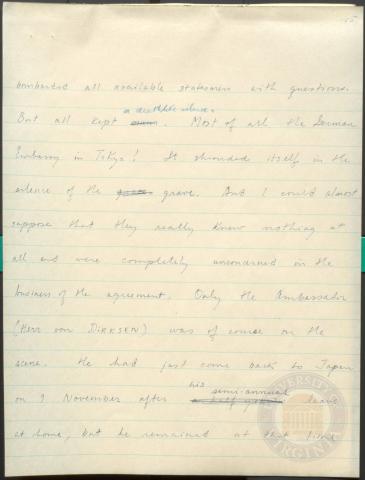 15
bombarded all available statesmen with questions.
But all kept a deathlike silence. Most of all the German
Embassy in Tokyo! It shrouded itself in the
silence of the grave. And I could almost
suppose that they really knew nothing at
all and were completely unconcerned in the
business of the agreement. Only the Ambassador
(Herr von DIRKSEN) was of course on the
scene. He had just come back to Japan
on 9 November after his semi-annual leave
at home, but he remained at that time
UNIVERSITY
VIRGINIA